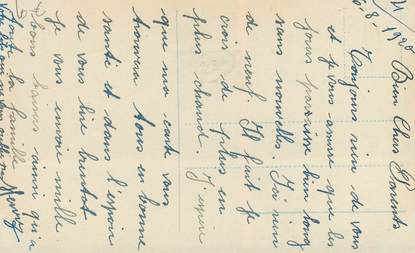 24
6.8.1920
Bien Chers Parents
Toujours rien de vous
et je vous assure que les
jours paraisse bien long
sans nouvelles. J'ai rien
de neuf. Il fait je
crois de plus en
plus chaud. J'espère
que ma carte vous
trouvera tous en bonne
santé et dans l'espoir
de vous lire bientôt
je vous envoie mille
bons baisers ainsi qu'a
toute la famille